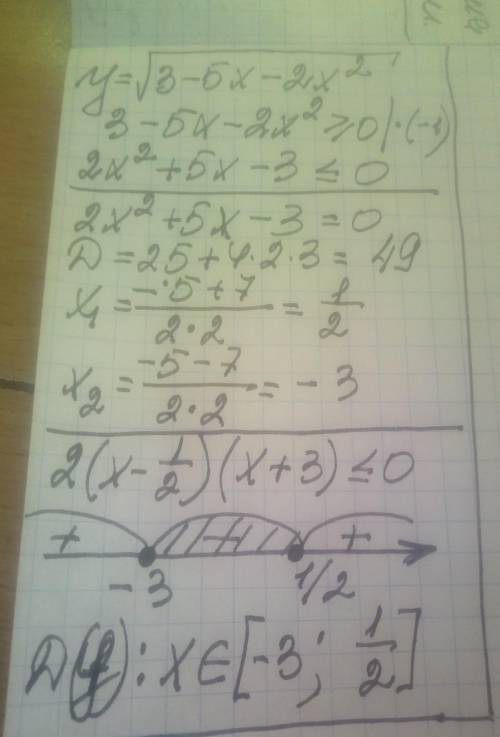 y=√(3-5x-2x²)
3-5x-2x²≥0|·(-1)
2x²+5x-3≤0
2x²+5x-3=0
D=25+4·2·3=49
x₁=(-5+7)/(2·2)=1/2
x₂=(-5-7)/(2·2)=-3
2(x-1/2)(x+3)≤0
+ - +
-3 1/2
D(y):x∈[-3;1/2]